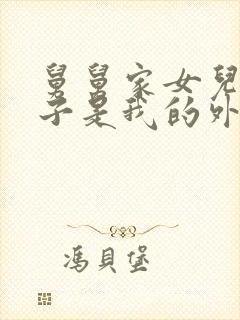 舅舅家女兒
子是我的外
馮貝堡